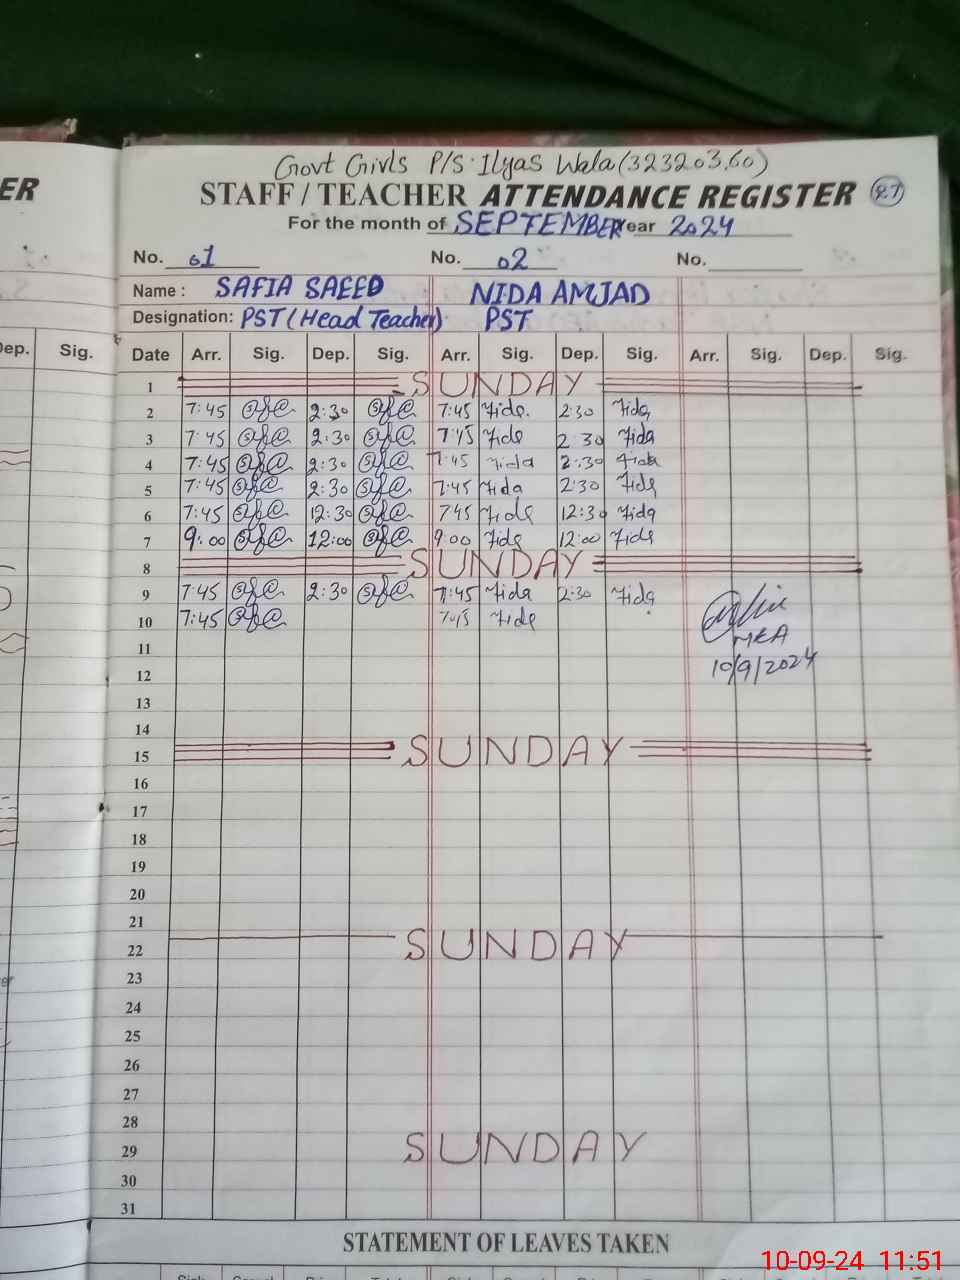 Govt Girls P/S Ilyas Wala (32320360)
ER STAFF / TEACHER ATTENDANCE REGISTER 27
For the month of SEPTEMBER Year 2024
No. 01 No. 02 No.
Name : SAFIA SAEED NIDA AMJAD
Designation: PST (Head Teacher) PST
Dep. Sig. Date Arr. Sig. Dep. Sig. Arr. Sig. Dep. Sig. Arr. Sig. Dep. Sig.
1 SUNDAY
2 7:45 2:30 7:45 Fida 2:30 Fida
3 7:45 2:30 7:45 Fida 2:30 Fida
4 7:45 2:30 7:45 Fida 2:30 Fida
5 7:45 2:30 7:45 Fida 2:30 Fida
6 7:45 12:30 745 Fida 12:30 Fida
7 9:00 12:00 9:00 Fida 12:00 Fida
8 SUNDAY
9 7:45 2:30 7:45 Fida 2:30 Fida
10 7:45 7:45 Fida
11 MEA
12 10/9/2024
13
14
15 SUNDAY
16
17
18
19
20
21
22 SUNDAY
23
24
25
26
27
28
29 SUNDAY
30
31
STATEMENT OF LEAVES TAKEN
10-09-24 11:51